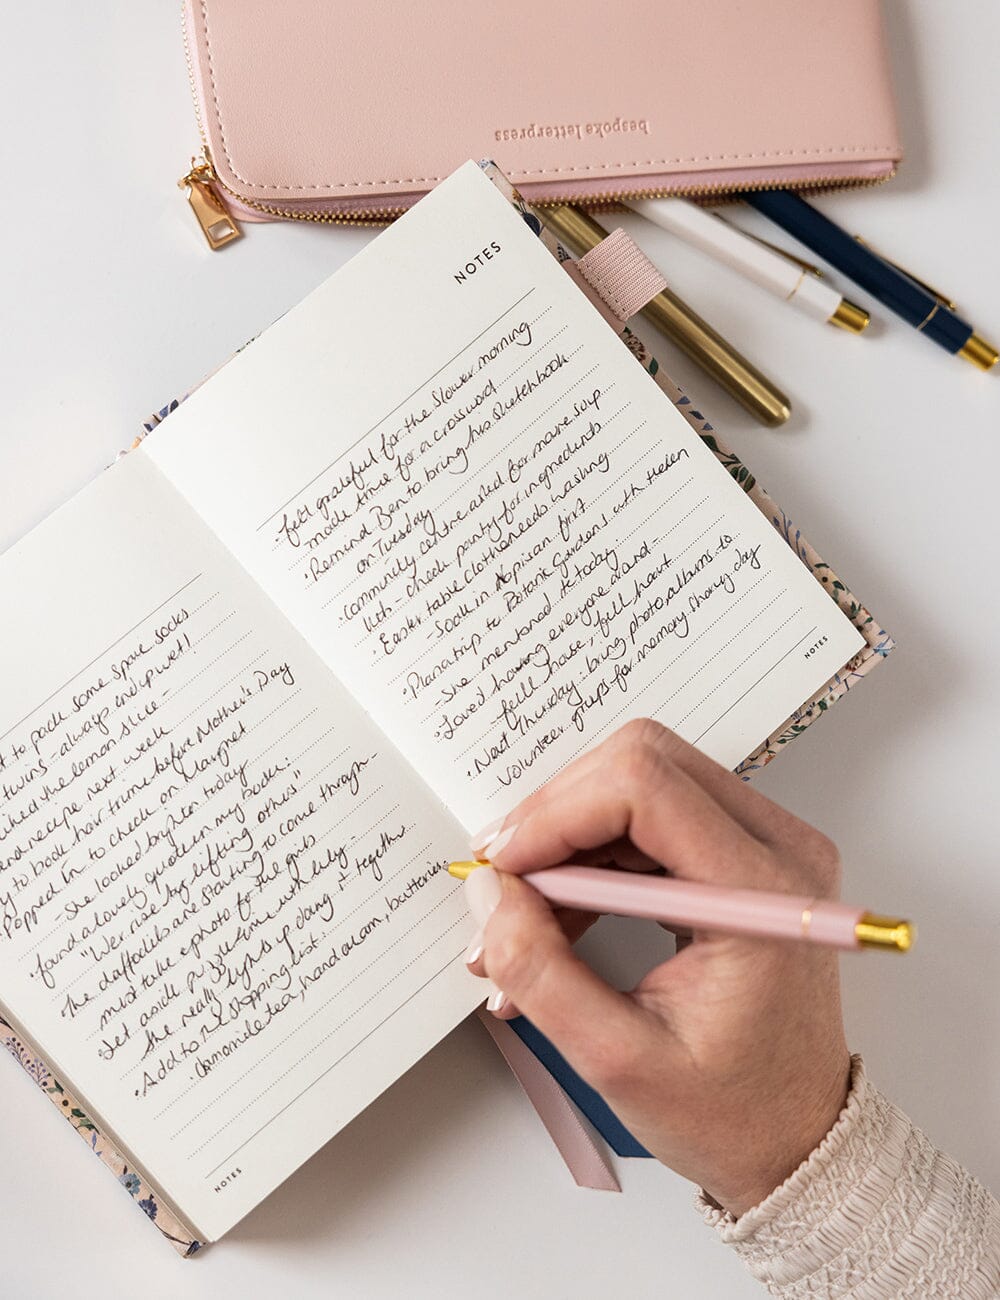 bespoke letterpress
t to pack some spare socks
twins - always end up wet!
liked the lemon slice -
end recipe next week
y to book hair trim before Mother's Day
Popped in to check on Margret
- she looked brighter today
found a lovely quote in my book:
"We rise by lifting others"
The daffodils are starting to come through -
must take a photo for the girls
Set aside puzzle time with Lily -
she really lights up doing it together
Add to the shopping list:
camomile tea, hand cream, batteries.
NOTES
NOTES
felt grateful for the slower morning
made time for a crossword
Remind Ben to bring his sketchbook
on Tuesday
Community centre asked for more soup
Feb - check pantry for ingredients
Easter table cloth needs washing
- soak in Napisan first
Plan a trip to Botanic Gardens with Helen
- she mentioned it today.
Loved having everyone round -
- full house, full heart
Next Thursday: bring photo albums to
volunteer group for memory sharing day
NOTES